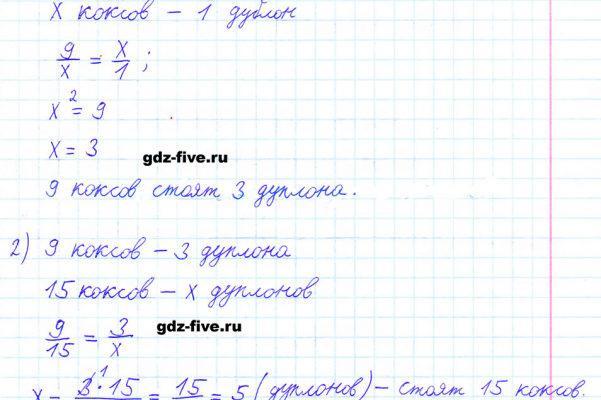 x коксов – 1 дублон
9/x = x/1 ;
x² = 9
x = 3
gdz-five.ru
9 коксов стоят 3 дуплона.
2) 9 коксов – 3 дуплона
15 коксов – x дуплонов
9/15 = 3/x
gdz-five.ru
x = 3·15 = 15 = 5 (дуплонов) – стоят 15 коксов.